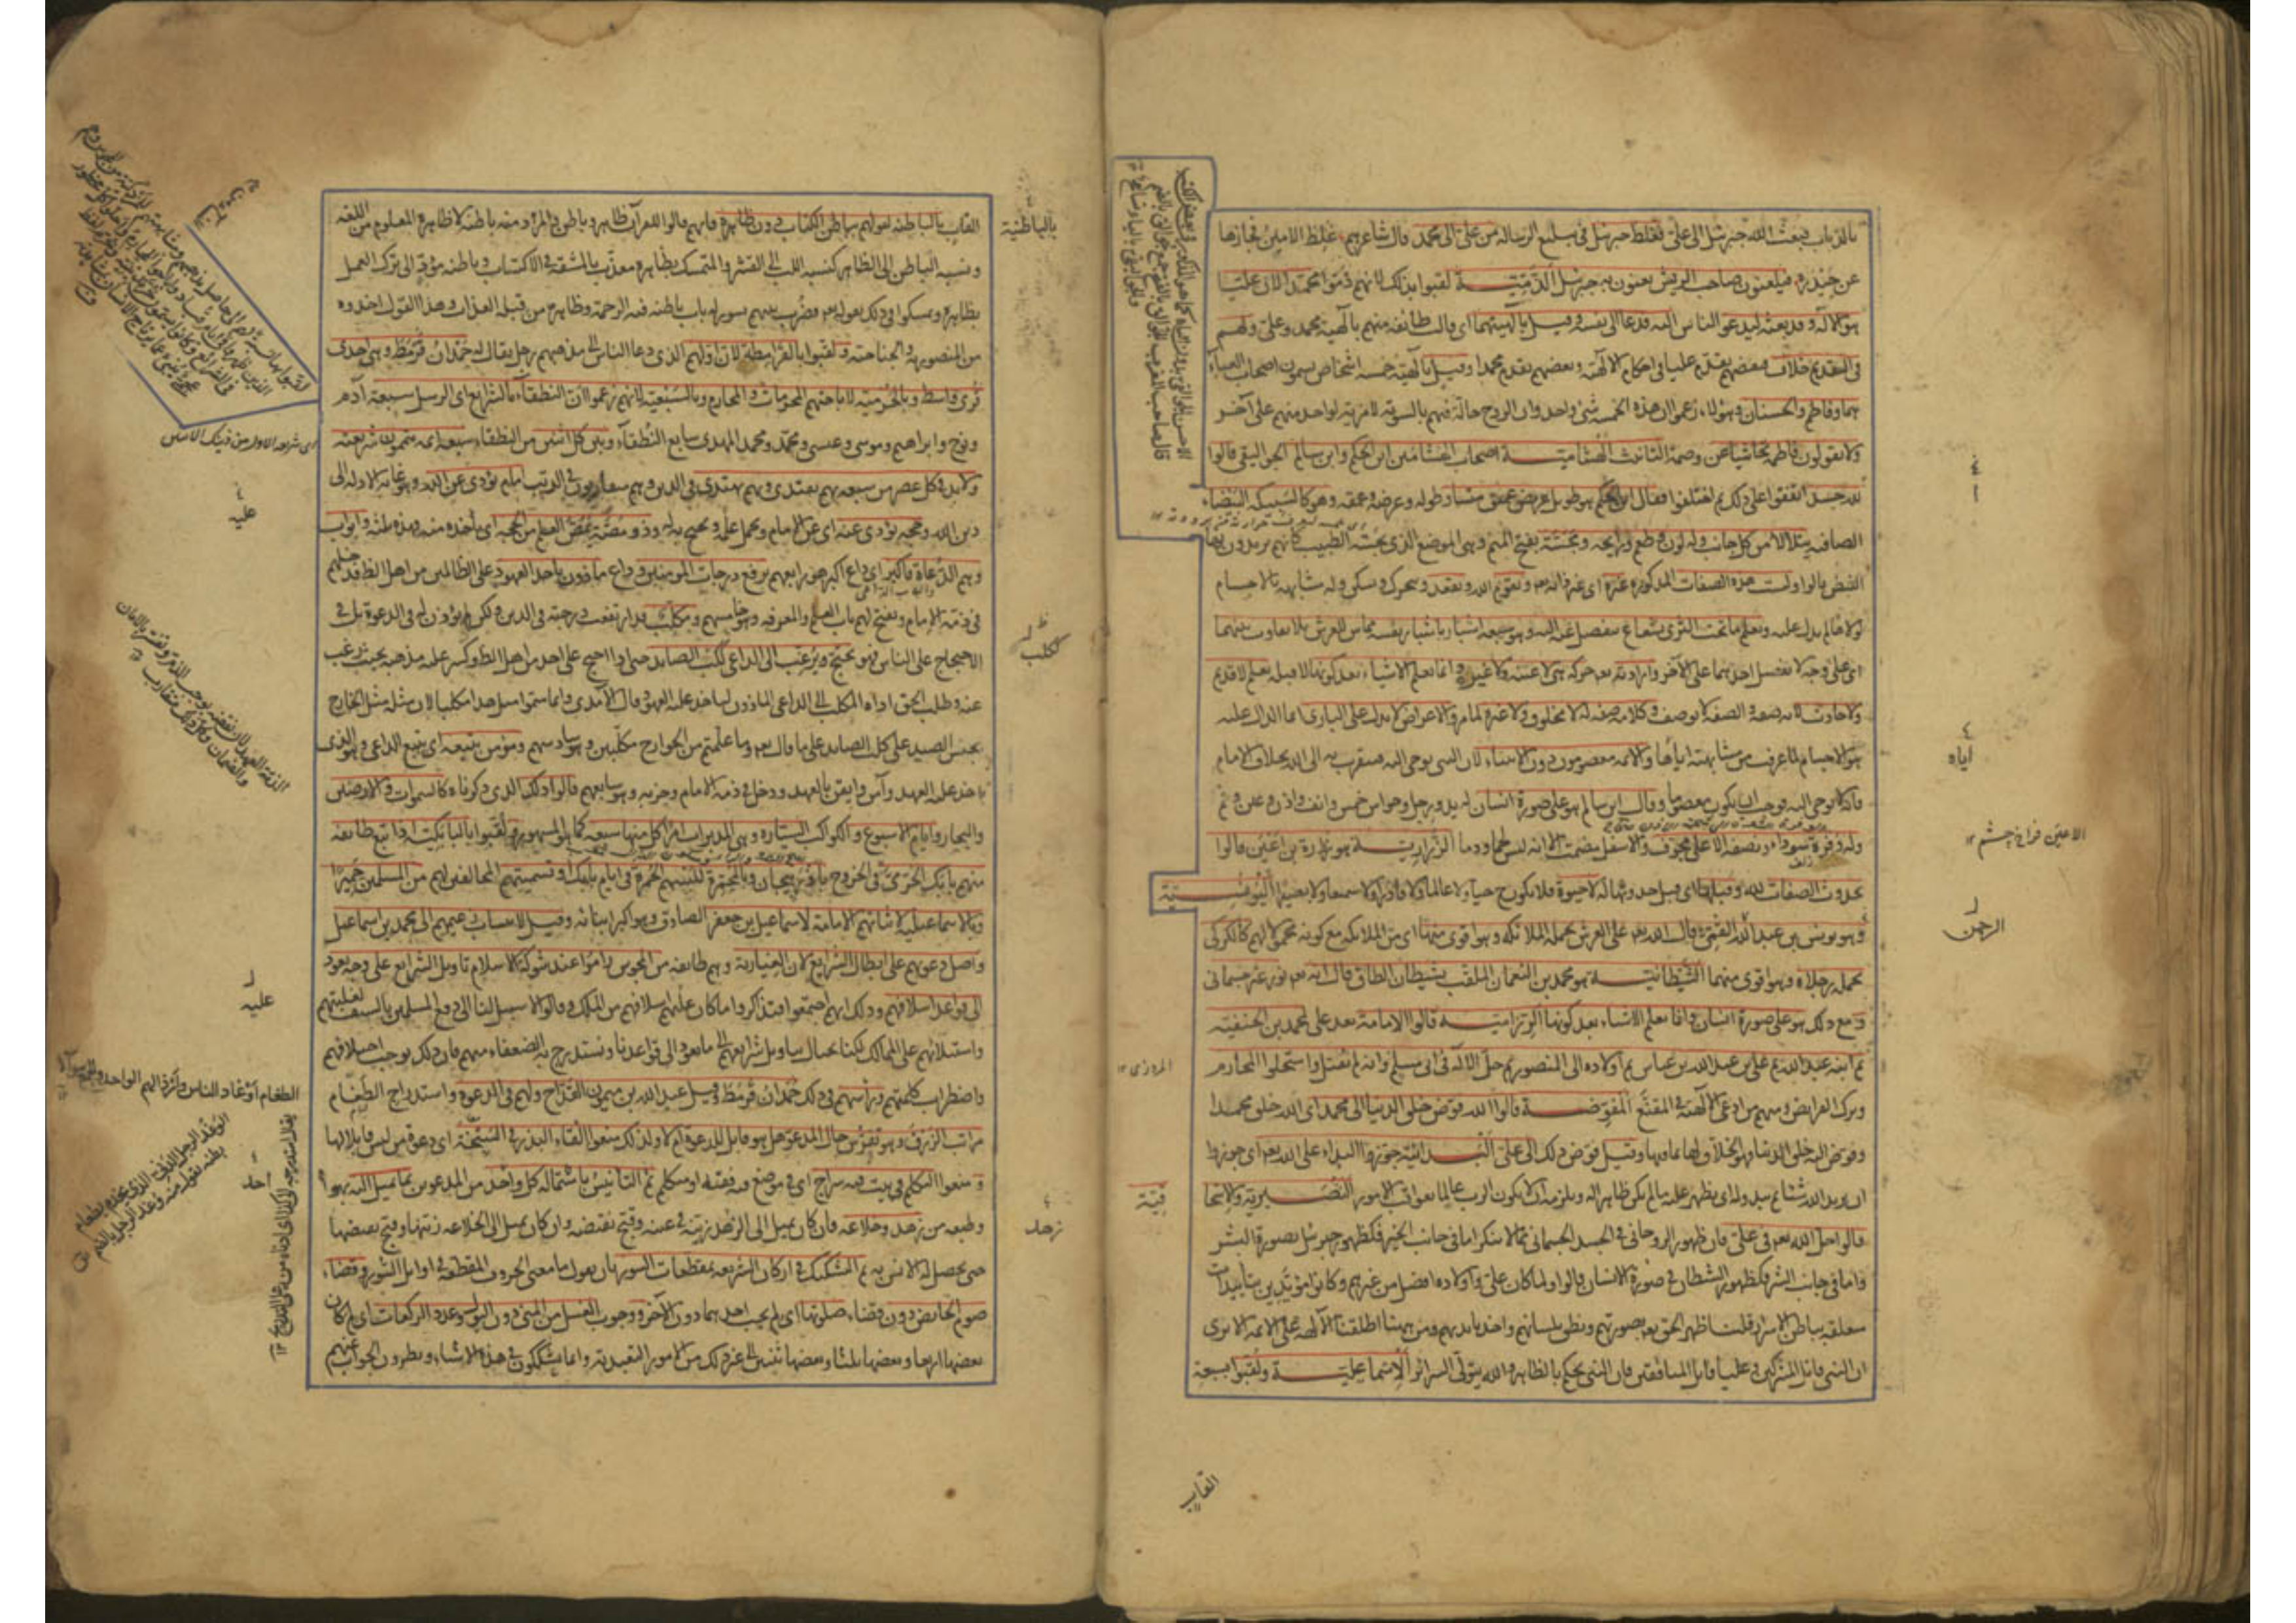 بالذباب فبعث الله جبرئيل الى علي فغلط جبرئيل في تبليغ الرسالة من علي الى محمد قال شاعرهم غلط الامين فجازها
عن حيدره فيلعنون صاحب الريش يعنون به جبرئيل الذمية لقبوا بذلك لانهم ذموا محمدا لان عليا
هو الاله وقد بعثه ليدعو الناس اليه فدعا الى نفسه وقيل بالهيتهما اي قالت طائفة منهم بالهية محمد وعلي ولهم
في التقديم خلاف فبعضهم يقدم عليا في احكام الالهية وبعضهم يقدم محمدا وقيل بالهية خمسة اشخاص يسمون اصحاب العباء
هما وفاطمة والحسنان وهؤلاء زعموا ان هذه الخمسة شيء واحد وان الروح حالة فيهم بالسوية لا مزية لواحد منهم على آخر
ولا يقولون فاطمة تحاشيا عن وصمة التانيث الهشامية اصحاب الهشامين ابن الحكم وابن سالم الجواليقي قالوا
لله جسد اتفقوا على ذلك ثم اختلفوا فقال ابن الحكم هو طويل عريض عميق متساو طوله وعرضه وعمقه وهو كالسبيكة البيضاء
الصافية يتلألأ من كل جانب وله لون وطعم ورائحة ومجسة بفتح الميم وهي الموضع الذي يجسه الطبيب كانهم يريدون بها
النبض قالوا وليست هذه الصفات المذكورة غيره اي غير ذاته ويقوم الله ويقعد ويتحرك ويسكن وله مشابهة بالاجسام
لولاها لم تدل عليه ويعلم ما تحت الثرى بشعاع ينفصل عنه اليه وهو سبعة اشبار باشبار نفسه مماس للعرش بلا تفاوت بينهما
اي على وجه لا يفضل احدهما على الآخر وارادته حركة هي لا عينه ولا غيره وانما يعلم الاشياء بعد كونها لا قبله بعلم لا قديم
ولا حادث لانه صفة والصفة لا توصف وكلامه صفة له لا مخلوق ولا غيره لما مر والاعراض لا تدل على الباري انما الدال عليه
هو الاجسام لما عرفت من مشابهته اياها والائمة معصومون دون الانبياء لان النبي يوحى اليه فيتقرب به الى الله بخلاف الامام
فانه لا يوحى اليه فوجب ان يكون معصوما وقال ابن سالم هو على صورة انسان له يد ورجل وحواس خمس وانف واذن وعين وفم
وله وفرة سوداء ونصفه الاعلى مجوف والاسفل مصمت الا انه ليس لحما ودما الزرارية هو زرارة بن اعين قالوا
بحدوث الصفات لله وقبلها اي قبل حدوثها له لا حيوة فلا يكون ح حيا ولا عالما ولا قادرا ولا سميعا ولا بصيرا اليونسية
هو يونس بن عبد الرحمن القمي قال الله على العرش تحمله الملائكة وهو اقوى منها اي من الملائكة مع كونه محمولا لهم كالكركي
تحمله رجلاه وهو اقوى منهما الشيطانية هو محمد بن النعمان الملقب بشيطان الطاق قال انه نور غير جسماني
ومع ذلك هو على صورة انسان وانما يعلم الاشياء بعد كونها الرزامية قالوا الامامة بعد علي لمحمد بن الحنفية
ثم ابنه عبد الله ثم علي بن عبد الله بن عباس ثم اولاده الى المنصور ثم حل الاله في ابي مسلم وانه لم يقتل واستحلوا المحارم
وترك الفرائض ومنهم من ادعى الالهية في المقنع المفوضة قالوا الله فوض خلق الدنيا الى محمد اي الله خلق محمدا
وفوض اليه خلق الدنيا فهو الخلاق لها بما فيها وقيل فوض ذلك الى علي البدائية جوزوا البداء على الله اي جوزوا
ان يريد الله شيئا ثم يبدو له اي يظهر عليه ما لم يكن ظاهرا له ويلزمه ان لا يكون الرب عالما بعواقب الامور النصيرية والاسحا
قالوا حل الله في علي فان ظهور الروحاني في الجسد الجسماني مما لا ينكر اما في جانب الخير فكظهور جبرئيل بصورة البشر
واما في جانب الشر فكظهور الشيطان في صورة الانسان قالوا ولما كان علي واولاده افضل من غيرهم وكانوا مؤيدين بتأييدات
متعلقة بباطن الاسرار قلنا ظهر الحق بصورتهم ونطق بلسانهم واخذ بايديهم ومن هيهنا اطلقنا الآلهة على الائمة الا ترى
ان النبي قاتل المشركين وعليا قاتل المنافقين فان النبي يحكم بالظاهر والله يتولى السرائر الاسماعيلية ولقبوا بسبعة
اياه
الاعين فراخ چشم
الرحمن
القاب
القاب بالباطنية لقولهم بباطن الكتاب دون ظاهره فانهم قالوا للقرآن ظاهر وباطن والمراد منه باطنه لا ظاهره المعلوم من اللغة
ونسبة الباطن الى الظاهر كنسبة اللب الى القشر والمتمسك بظاهره معذب بالمشقة في الاكتساب وباطنه مؤد الى ترك العمل
بظاهره وتمسكوا في ذلك بقوله فضرب بينهم بسور له باب باطنه فيه الرحمة وظاهره من قبله العذاب وهذا القول اخذوه
من المنصورية والجناحية ولقبوا بالقرامطة لان اولهم الذي دعا الناس الى مذهبهم رجل يقال له حمدان قرمط وهي احدى
قرى واسط وبالحرمية لاباحتهم المحرمات والمحارم وبالسبعية لانهم زعموا ان النطقاء بالشرايع اي الرسل سبعة آدم
ونوح وابراهيم وموسى وعيسى ومحمد ومحمد المهدي سابع النطقاء وبين كل اثنين من النطقاء سبعة ائمة يتممون شريعته
ولا بد في كل عصر من سبعة بهم يقتدى وبهم يهتدى في الدين وهم متفاوتون في الرتب امام يؤدي عن الله وهو غاية الادلة الى
دين الله وحجة يؤدي عنه اي عن الامام ويحمل علمه ويحتج به له وذو مصة يمص العلم من الحجة اي يأخذه منه فهذه ثلثة وابواب
وهم الدعاة فاكبر اي داع اكبر هو رابعهم يرفع درجات المؤمنين وداع ماذون يأخذ العهود على الطالبين من اهل الظاهر فيدخلهم
في ذمة الامام ويفتح لهم باب العلم والمعرفة وهو خامسهم ومكلب قد ارتفعت درجته في الدين ولكن لم يؤذن له في الدعوة بل في
الاحتجاج على الناس فهو يحتج ويرغب الى الداعي ككلب الصايد حتى اذا احتج على احد من اهل الظاهر وكسر عليه مذهبه بحيث رغب
عنه وطلب الحق اداه المكلب الى الداعي الماذون لياخذ عليه العهود قال الآمدي وانما سموا مثل هذا مكلبا لان مثله مثل الجارح
يحبس الصيد على كلب الصايد على ما قال وما علمتم من الجوارح مكلبين وهو سادسهم ومؤمن يتبعه اي يتبع الداعي وهو الذي
اخذ عليه العهد وآمن وايقن بالعهد ودخل في ذمة الامام وحزبه وهو سابعهم قالوا ذلك الذي ذكرناه كالسموات والارضين
والبحار وايام الاسبوع والكواكب السيارة وهي المدبرات امرا كل منها سبعة كما هو المشهور ولقبوا بالبابكية اذ اتبع طائفة
منهم بابك الخرمي في الخروج باذربيجان وبالمحمرة للبسهم الحمرة في ايام بابك او تسميتهم المخالفين لهم من المسلمين حميرا
وبالاسماعيلية لاثباتهم الامامة لاسماعيل بن جعفر الصادق وهو اكبر ابنائه وقيل لانتساب زعيمهم الى محمد بن اسماعيل
واصل دعوتهم على ابطال الشرايع لان الغيارية وهم طائفة من المجوس راموا عند شوكة الاسلام تاويل الشرايع على وجه يعود
الى قواعد اسلافهم وذلك انهم اجتمعوا فتذاكروا ما كان عليه اسلافهم من الملك وقالوا لا سبيل لنا الى دفع المسلمين بالسيف لغلبتهم
واستيلائهم على الممالك لكنا نحتال بتاويل شرايعهم الى ما يعود الى قواعدنا ونستدرج به الضعفاء منهم فان ذلك يوجب اختلافهم
واضطراب كلمتهم ورأسهم في ذلك حمدان قرمط وقيل عبد الله بن ميمون القداح ولهم في الدعوة واستدراج الطغام
مراتب الزرق وهو تفرس حال المدعو هل هو قابل للدعوة ام لا ولذلك منعوا القاء البذر في السبخة اي دعوة من ليس قابلا لها
ومنعوا التكلم في بيت فيه سراج اي في موضع فيه فقيه او متكلم ثم التانيس باستمالة كل واحد من المدعوين بما يميل اليه بهواه
وطبعه من زهد وخلاعة فان كان يميل الى الزهد زينه في عينه وقبح نقيضه وان كان يميل الى الخلاعة زينها وقبح نقيضها
حتى يحصل له الانس به ثم التشكيك في اركان الشريعة بمقطعات السور بان يقول ما معنى الحروف المقطعة في اوايل السور وقضاء
صوم الحائض دون قضاء صلوتها اي لم يجب احدهما دون الآخر ووجوب الغسل من المني دون البول وعدد الركعات اي لم كان
بعضها اربعا وبعضها ثلثا وبعضها ثنتين الى غير ذلك من الامور التعبدية وانما يشككون في هذه الاشياء ويطوون الجواب عنهم
بالباطنية
ككلب
زهد
عليه
عليه
احد
الطغام اوغاد الناس